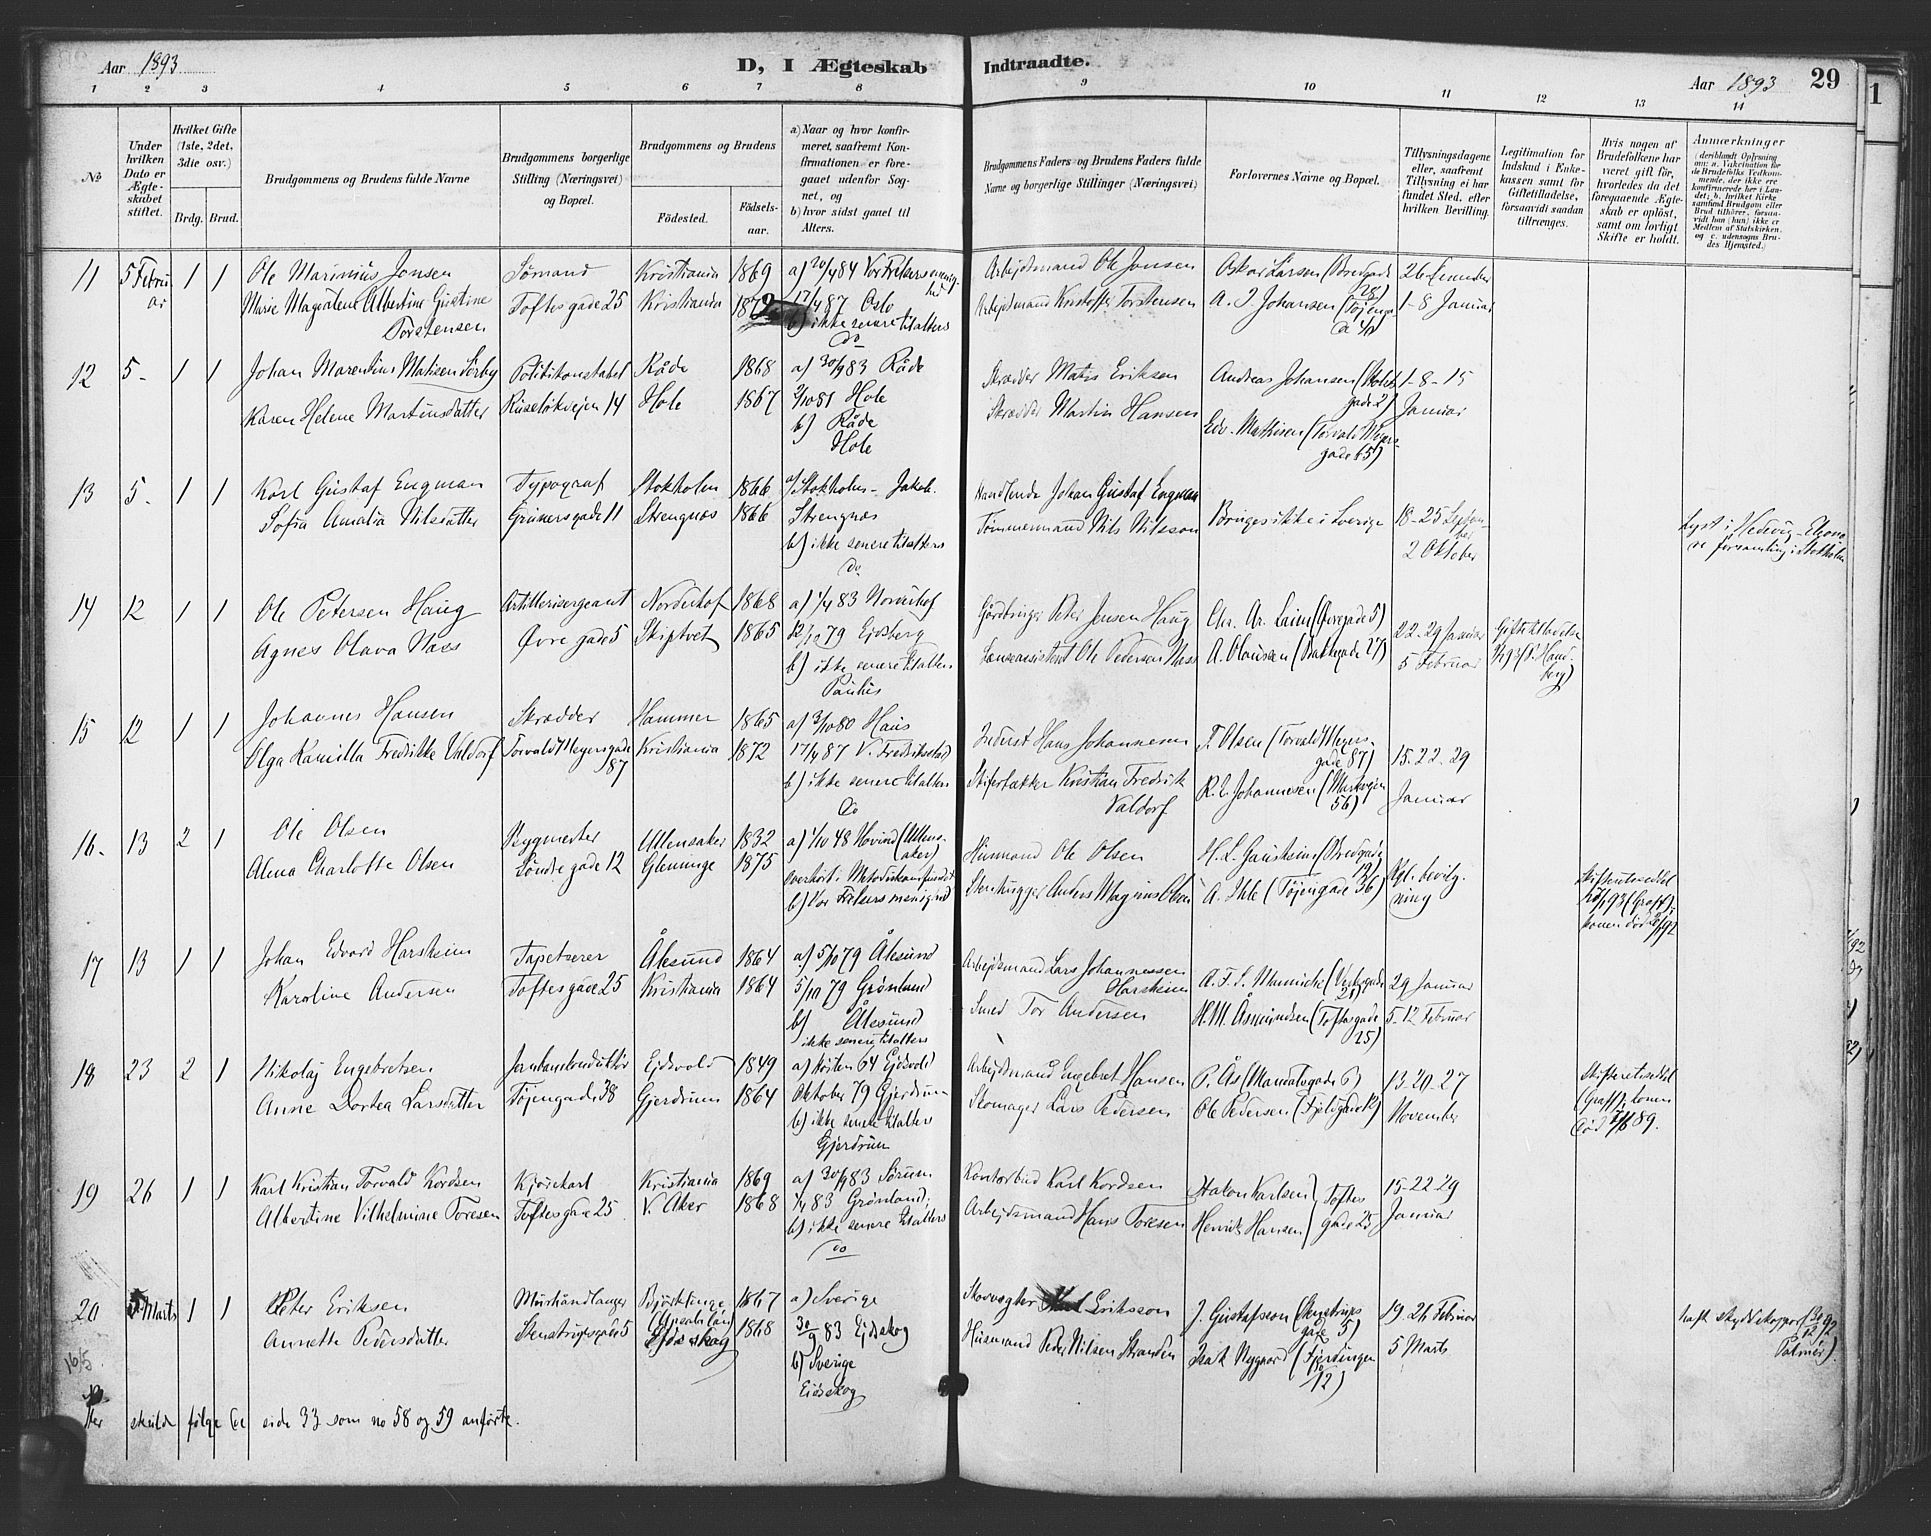 Aar 1893
D, I Ægteskab
Indtraadte.
Aar 1893
29
1 2 3 4 5 6 7 8 9 10 11 12 13 14
No
Under hvilken Dato er Ægteskabet stiftet.
Hvilket Gifte (1ste, 2det, 3die osv.)
Brdg. Brud.
Brudgommens og Brudens fulde Navne
Brudgommens borgerlige Stilling (Næringsvei) og Bopæl.
Brudgommens og Brudens
Fødested.
Fødselsaar.
a) Naar og hvor konfirmeret, saafremt Konfirmationen er foregaaet udenfor Sognet, og
b) hvor sidst gaaet til Alters.
Brudgommens Faders og Brudens Faders fulde Navne og borgerlige Stillinger (Næringsvei)
Forlovernes Navne og Bopæl.
Tillysningsdagene eller, saafremt Tillysning ei har fundet Sted, efter hvilken Bevilling.
Legitimation for Indskud i Enkekassen samt for Giftetilladelse, forsaavidt saadan tiltrænges.
Hvis nogen af Brudefolkene har været gift før, hvorledes da det foregaaende Ægteskab er opløst, samt om lovligt Skifte er holdt.
Anmærkninger
11 5 Februar 1 1
Ole Marinius Jonsen
Marie Magdalene Albertine Gustine Torstensen
Sømand
Toftesgade 25
Kristiania 1869
Kristiania 1872
a) 20/4 84 Vor Frelsers menighed
17/4 87 Oslo
b) ikke senere til alters
do
Arbeidsmand Ole Jonsen
Arbeidsmand Kristoffer Torstensen
Oskar Larsen (Bredgade 28)
A. J. Johansen (Tøjengade
1-8 Januar
12 5- 1 1
Johan Marentius Matisen Sørby
Karen Helene Martinsdatter
Politikonstabel
Ruseløkvejen 14
Råde 1868
Hole 1867
a) 30/9 83 Råde
2/10 81 Hole
b) Råde
Hole
Skrædder Matis Eriksen
Skrædder Martin Hansen
Andreas Johansen
Edv. Mathisen (Torvald Meyersgade 65)
1-8-15
Januar
13 5- 1 1
Karl Gustaf Engman
Sofia Amalia Nilsdatter
Typograf
Grünersgade 11
Stokholm 1866
Strengnæs 1866
a) Stokholm - Jakob.
Strengnæs
b) ikke senere til alters
do
Handlende Johan Gustaf Engman
Tømmermand Nils Nilsson
Bruges ikke i Sverige
18-25 September
2 Oktober
Lyst i Hedevig-Eleonore forsamling i Stokholm
14 12 1 1
Ole Petersen Haug
Agnes Olava Næss
Artillerisergeant
Øvre gade 5
Norderhof 1868
Skiptvet 1865
a) 1/4 83 Norderhof
12/10 79 Eidsberg
b) ikke senere til alters
Paulus
Gårdbruger Peter Jensen Haug
Lænsassistent Ole Pedersen Næss
Chr. Ar. Laim (Øvregade 5)
A. Olausen (Bakkegade 27)
22-29 Januar
5 Februar
Giftetilladelse
15 12 1 1
Johannes Hansen
Olga Kamilla Fredrikke Valdorf
Skrædder
Torvald Meyersgade 87
Hammer 1865
Kristiania 1872
a) 3/10 80 Haus
17/4 87 V. Fredrikstad
b) ikke senere til alters
do
Inderst Hans Johannesen
Skifertækker Kristian Fredrik Valdorf
T. Olsen (Torvald Meyersgade 87)
R. E. Johannesen (Markvejen 56)
15-22-29
Januar
16- 13 2 1
Ole Olsen
Alma Charlotte Olsen
Bygmester
Søndre gade 12
Ullensaker 1832
Glemminge 1875
a) 1/10 48 Hovind (Ullensaker)
overhørt i Metodistkamfundet
b) Vor Frelsers menighed
Husmand Ole Olsen
Stenhugger Anders Magnus Olsen
H. L. Gaustein (Bredgade 19)
A. Ihle (Tøjengade 36)
Kgl. bevilgning
Skifteretsseddel 28/1 93 (Graff),
konen død
17 13 1 1
Johan Edvard Harsheim
Karoline Andersen
Tapetserer
Toftesgade 25
Ålesund 1864
Kristiania 1864
a) 5/10 79 Ålesund
5/10 79 Grønland
b) Ålesund
ikke senere til alters
Arbejdsmand Lars Johannessen Harsheim
Smed Tor Andersen
A. F. S. Mannichi (Vestregade 21)
H. M. Åsmundsen (Toftesgade 25)
29 Januar
5-12 Februar
18 23 2 1
Nikolaj Engebretsen
Anne Dortea Larsdatter
Jernbanekonduktør
Tøjengade 38
Ejdsvold 1849
Gjerdrum 1864
a) Høsten 64 Ejdsvold
Oktober 79 Gjerdrum
b) ikke senere til alters
Gjerdrum
Arbejdsmand Engebret Hansen
Skomager Lars Pedersen
P. Ås (Mandalsgade 6)
Ole Pedersen (Fjeldgade 12)
13-20-27
November
Skifteretsseddel
(Graff), konen
død 7/6 89.
19 26 1 1
Karl Kristian Torvald Kordsen
Albertine Vilhelmine Toresen
Kjørekarl
Toftesgade 25
Kristiania 1869
V. Aker 1868
a) 30/9 83 Sørum
1/4 83 Grønland.
b) ikke senere til alters
do
Kontorbud Karl Kordsen
Arbejdsmand Hans Toresen
Hakon Karlsen
Henrik Hansen
Toftesgade 25
15-22-29
Januar
20 5 Marts 1 1
Peter Eriksen
Annette Pedersdatter
Murhåndlanger
Stenstrupsgade 5
Björklinge (Upsala län) 1867
Ejdskog 1868
a) Sverige
30/9 83 Ejdskog
b) Sverige
Ejdskog
Skovvogter Eriksson
Husmand Peder Nilsen Stranden
J. Gustafsson (Stenstrupsgade 5)
Isak Nygård (Fjerdingen 12)
19. 26 Februar
5 Marts
haft skyddskoppor (30/12 92 Palmér).
16/5
Her skulde følge de side 33 som no 58 og 59 anførte.